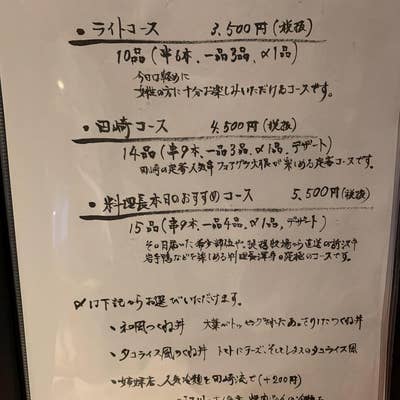 ・ライトコース 3,500円(税抜)
10品(串6本、一品3品、〆1品)
今日は軽めに
女性の方に十分お楽しみいただけるコースです。
・田崎コース 4,500円(税抜)
14品(串9本、一品3品、〆1品、デザート)
田崎の定番人気串フォアグラ大根が楽しめる定番コースです。
・料理長本日のおすすめコース 5,500円(税抜)
15品(串9本、一品4品、〆1品、デザート)
その日届いた希少部位や、直送の
岩手鴨などを楽しめる料理長渾身の究極のコースです。
〆は下記からお選びいただけます。
・和風つくね丼 大葉がトッピングされたあっさりしたつくね丼
・タコライス風つくね丼 トマトにチーズ、そしてレタスのタコライス風
・姉妹店、人気冷麺を田崎流で(+200円)